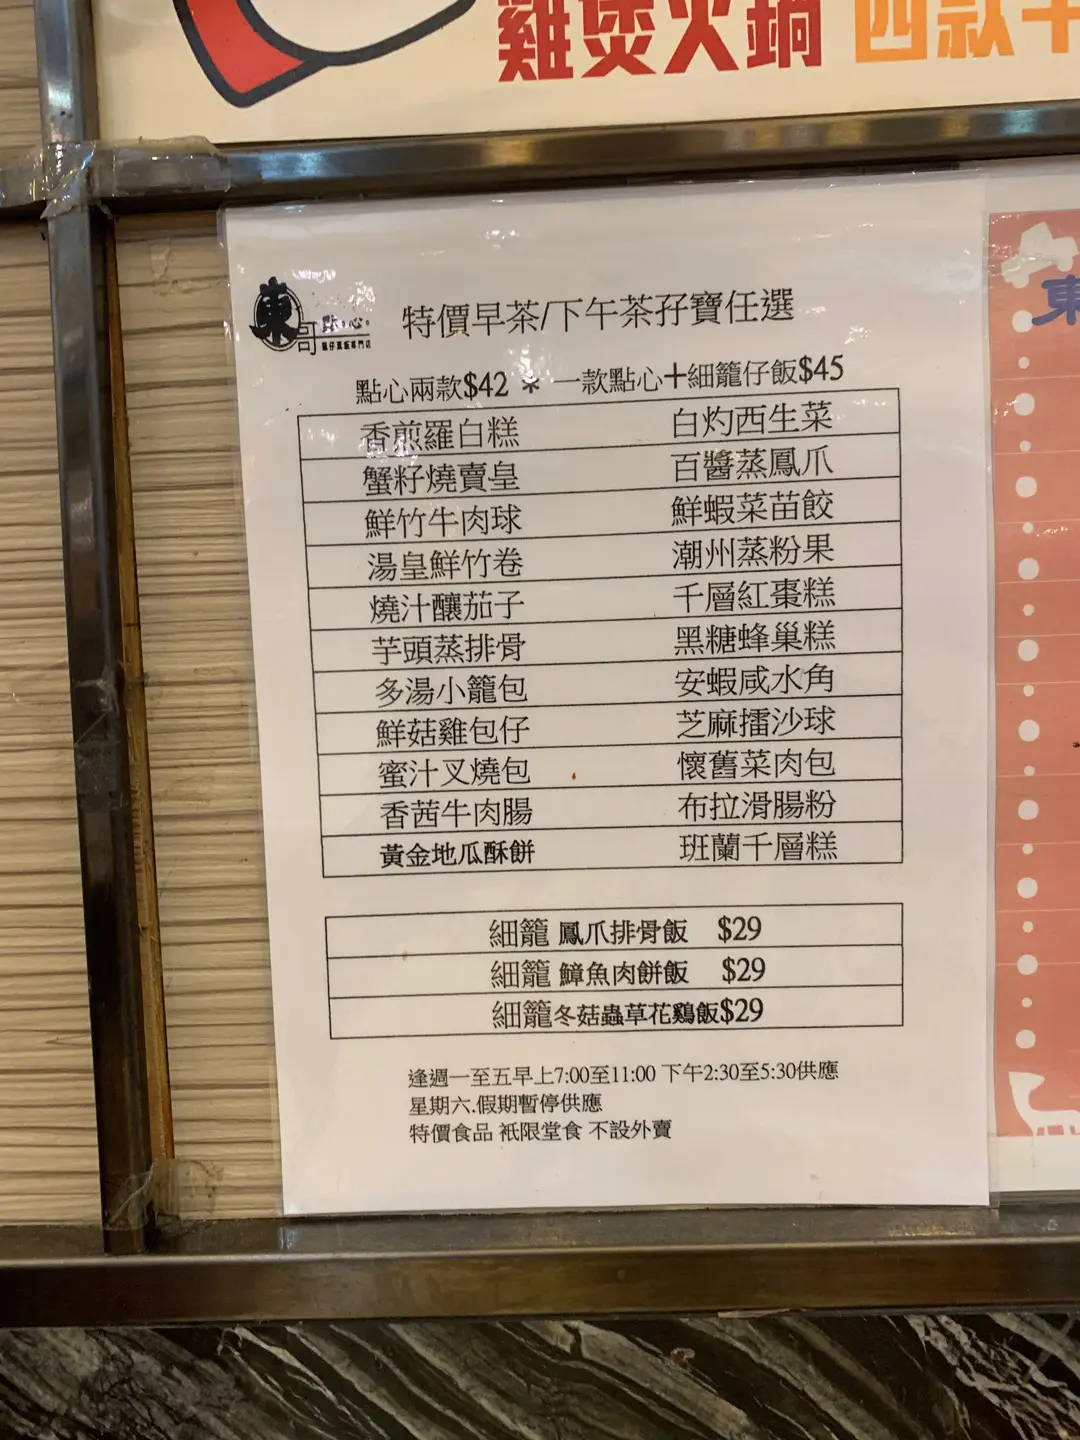 雞煲火鍋 四款
東哥 點。心。
特價早茶/下午茶孖寶任選
點心兩款$42 * 一款點心+細籠仔飯$45
香煎羅白糕 白灼西生菜
蟹籽燒賣皇 百醬蒸鳳爪
鮮竹牛肉球 鮮蝦菜苗餃
湯皇鮮竹卷 潮州蒸粉果
燒汁釀茄子 千層紅棗糕
芋頭蒸排骨 黑糖蜂巢糕
多湯小籠包 安蝦咸水角
鮮菇雞包仔 芝麻擂沙球
蜜汁叉燒包 懷舊菜肉包
香茜牛肉腸 布拉滑腸粉
黃金地瓜酥餅 班蘭千層糕
細籠 鳳爪排骨飯 $29
細籠 鱆魚肉餅飯 $29
細籠冬菇蟲草花鷄飯$29
逢週一至五早上7:00至11:00 下午2:30至5:30供應
星期六.假期暫停供應
特價食品 衹限堂食 不設外賣
東